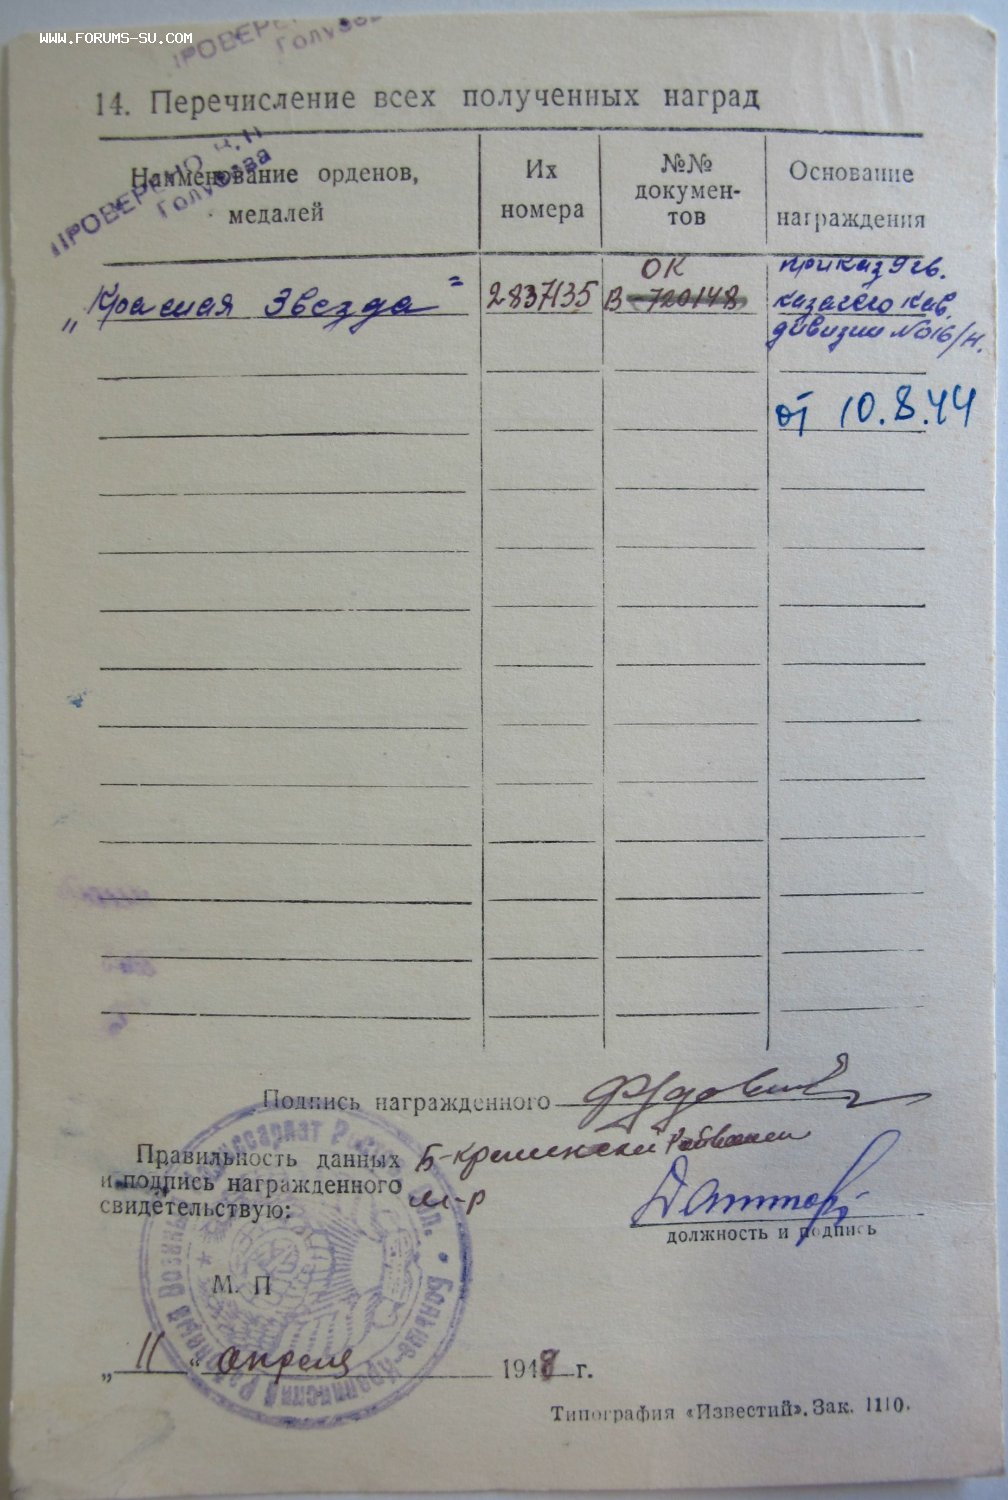 WWW.FORUMS-SU.COM
ПРОВЕРЕНО
Голубева
14. Перечисление всех полученных наград
ПРОВЕРЕНО
Голубева
Наименование орденов, медалей
Их номера
№№ докумен-тов
Основание награждения
„Красная Звезда"
2837135
ОК
В 720148
приказ 9 гв.
казачего кав.
дивизии №016/н.
от 10.8.44
Подпись награжденного
Правильность данных
и подпись награжденного
свидетельствую:
Б-Крепинский Райвоенком
м-р
должность и подпись
М. П
„11“ апреля 1948 г.
Типография «Известий». Зак. 1110.